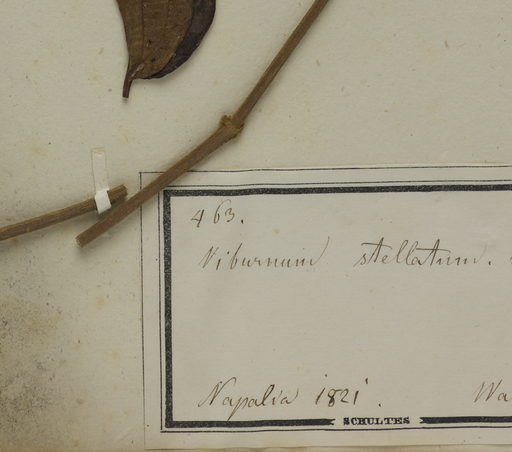 463.
Viburnum stellatum.
Napalia 1821.
SCHULTES